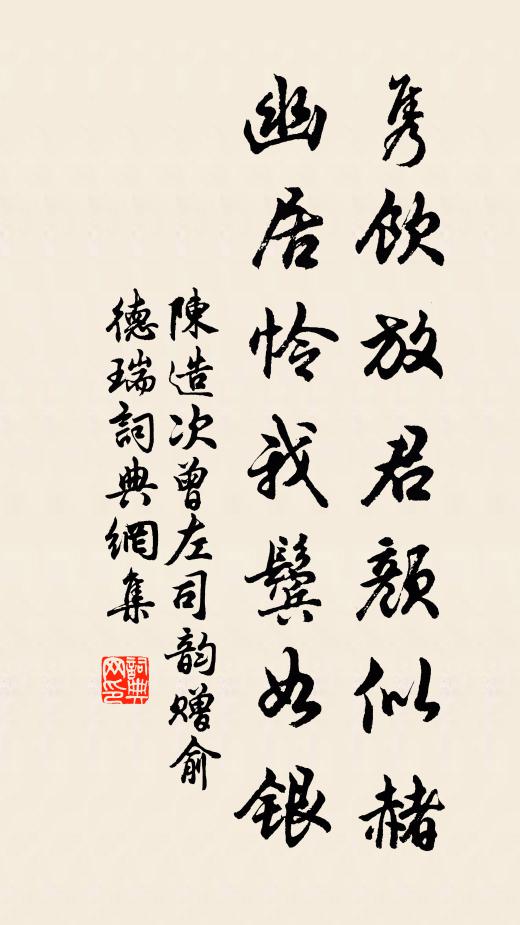 隽飲放君顏似赭
幽居怜我鬓如銀
陳造次曾左司韵赠俞
德瑞詞典網集
詞典网印